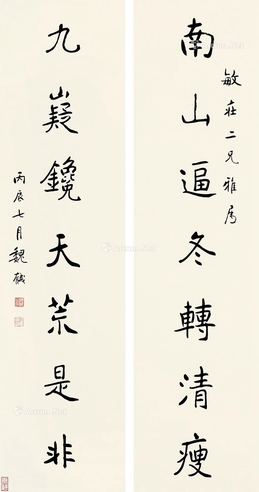 南山逼冬轉清瘦
敏莊二兄雅属
九嶷鑱天荒是非
丙辰七月魏戫